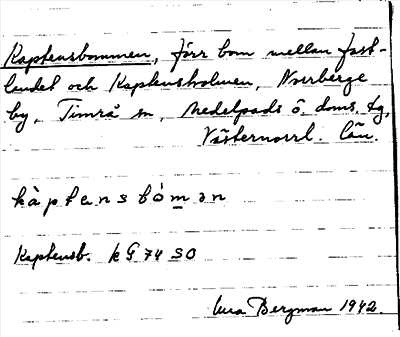 Kaptensbommen, förr bom mellan fast-
landet och Kaptensholmen, Norrberge
by, Timrå sn, Medelpads ö. doms. tg,
Västernorrl. län.
kàptensbómən
Kaptensb. kG 74 SO
Bergman 1942.